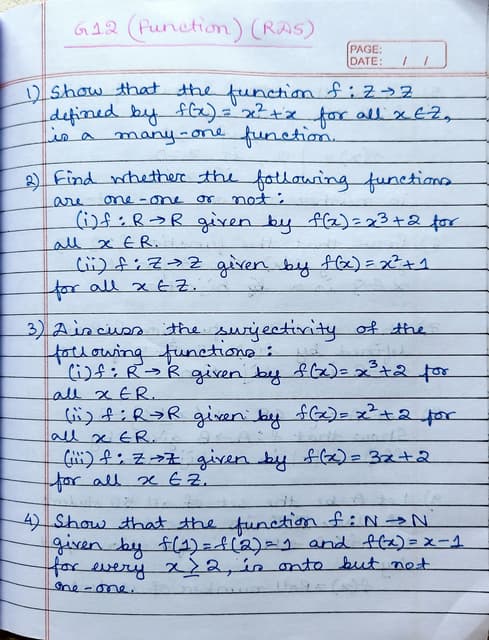 G12 (Function) (RDS)
PAGE:
DATE: / /
1) Show that the function f : Z → Z
defined by f(x) = x² + x for all x ∈ Z,
is a many-one function.
2) Find whether the following functions
are one-one or not :
(i) f : R → R given by f(x) = x³ + 2 for
all x ∈ R.
(ii) f : Z → Z given by f(x) = x² + 1
for all x ∈ Z.
3) Discuss the surjectivity of the
following functions :
(i) f : R → R given by f(x) = x³ + 2 for
all x ∈ R.
(ii) f : R → R given by f(x) = x² + 2 for
all x ∈ R.
(iii) f : Z → Z given by f(x) = 3x + 2
for all x ∈ Z.
4) Show that the function f : N → N
given by f(1) = f(2) = 1 and f(x) = x - 1
for every x ≥ 2, is onto but not
one-one.